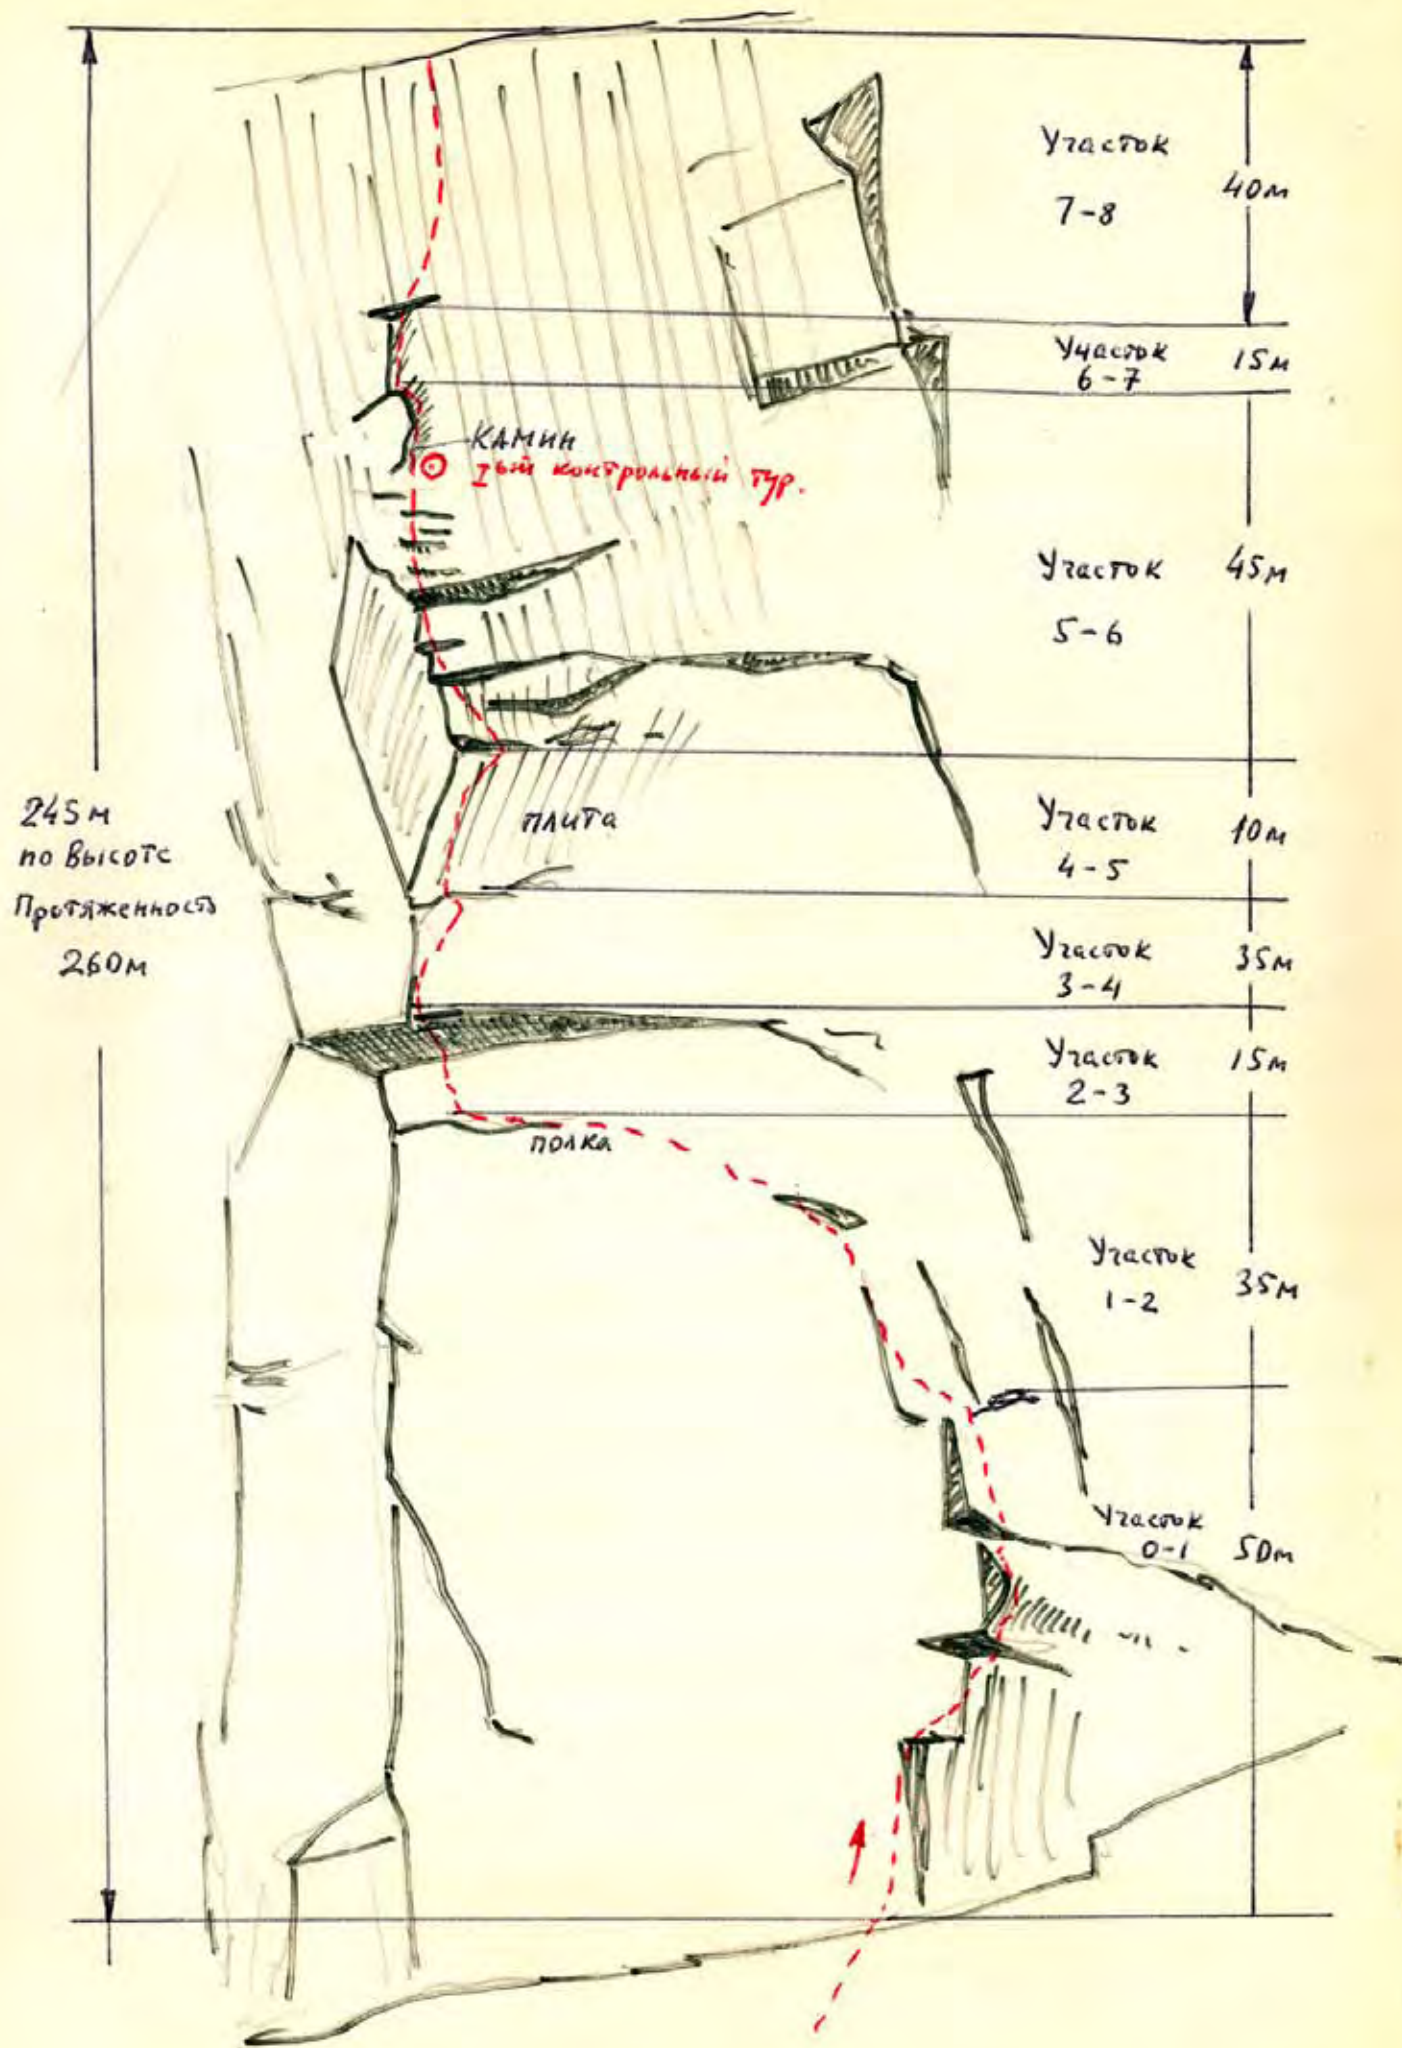 Участок
7-8
40м
Участок
6-7
15м
КАМИН
Iый контрольный тур.
Участок
5-6
45м
245м
по высоте
Протяженность
260м
ПЛИТА
Участок
4-5
10м
Участок
3-4
35м
Участок
2-3
15м
полка
Участок
1-2
35м
Участок
0-1
50м